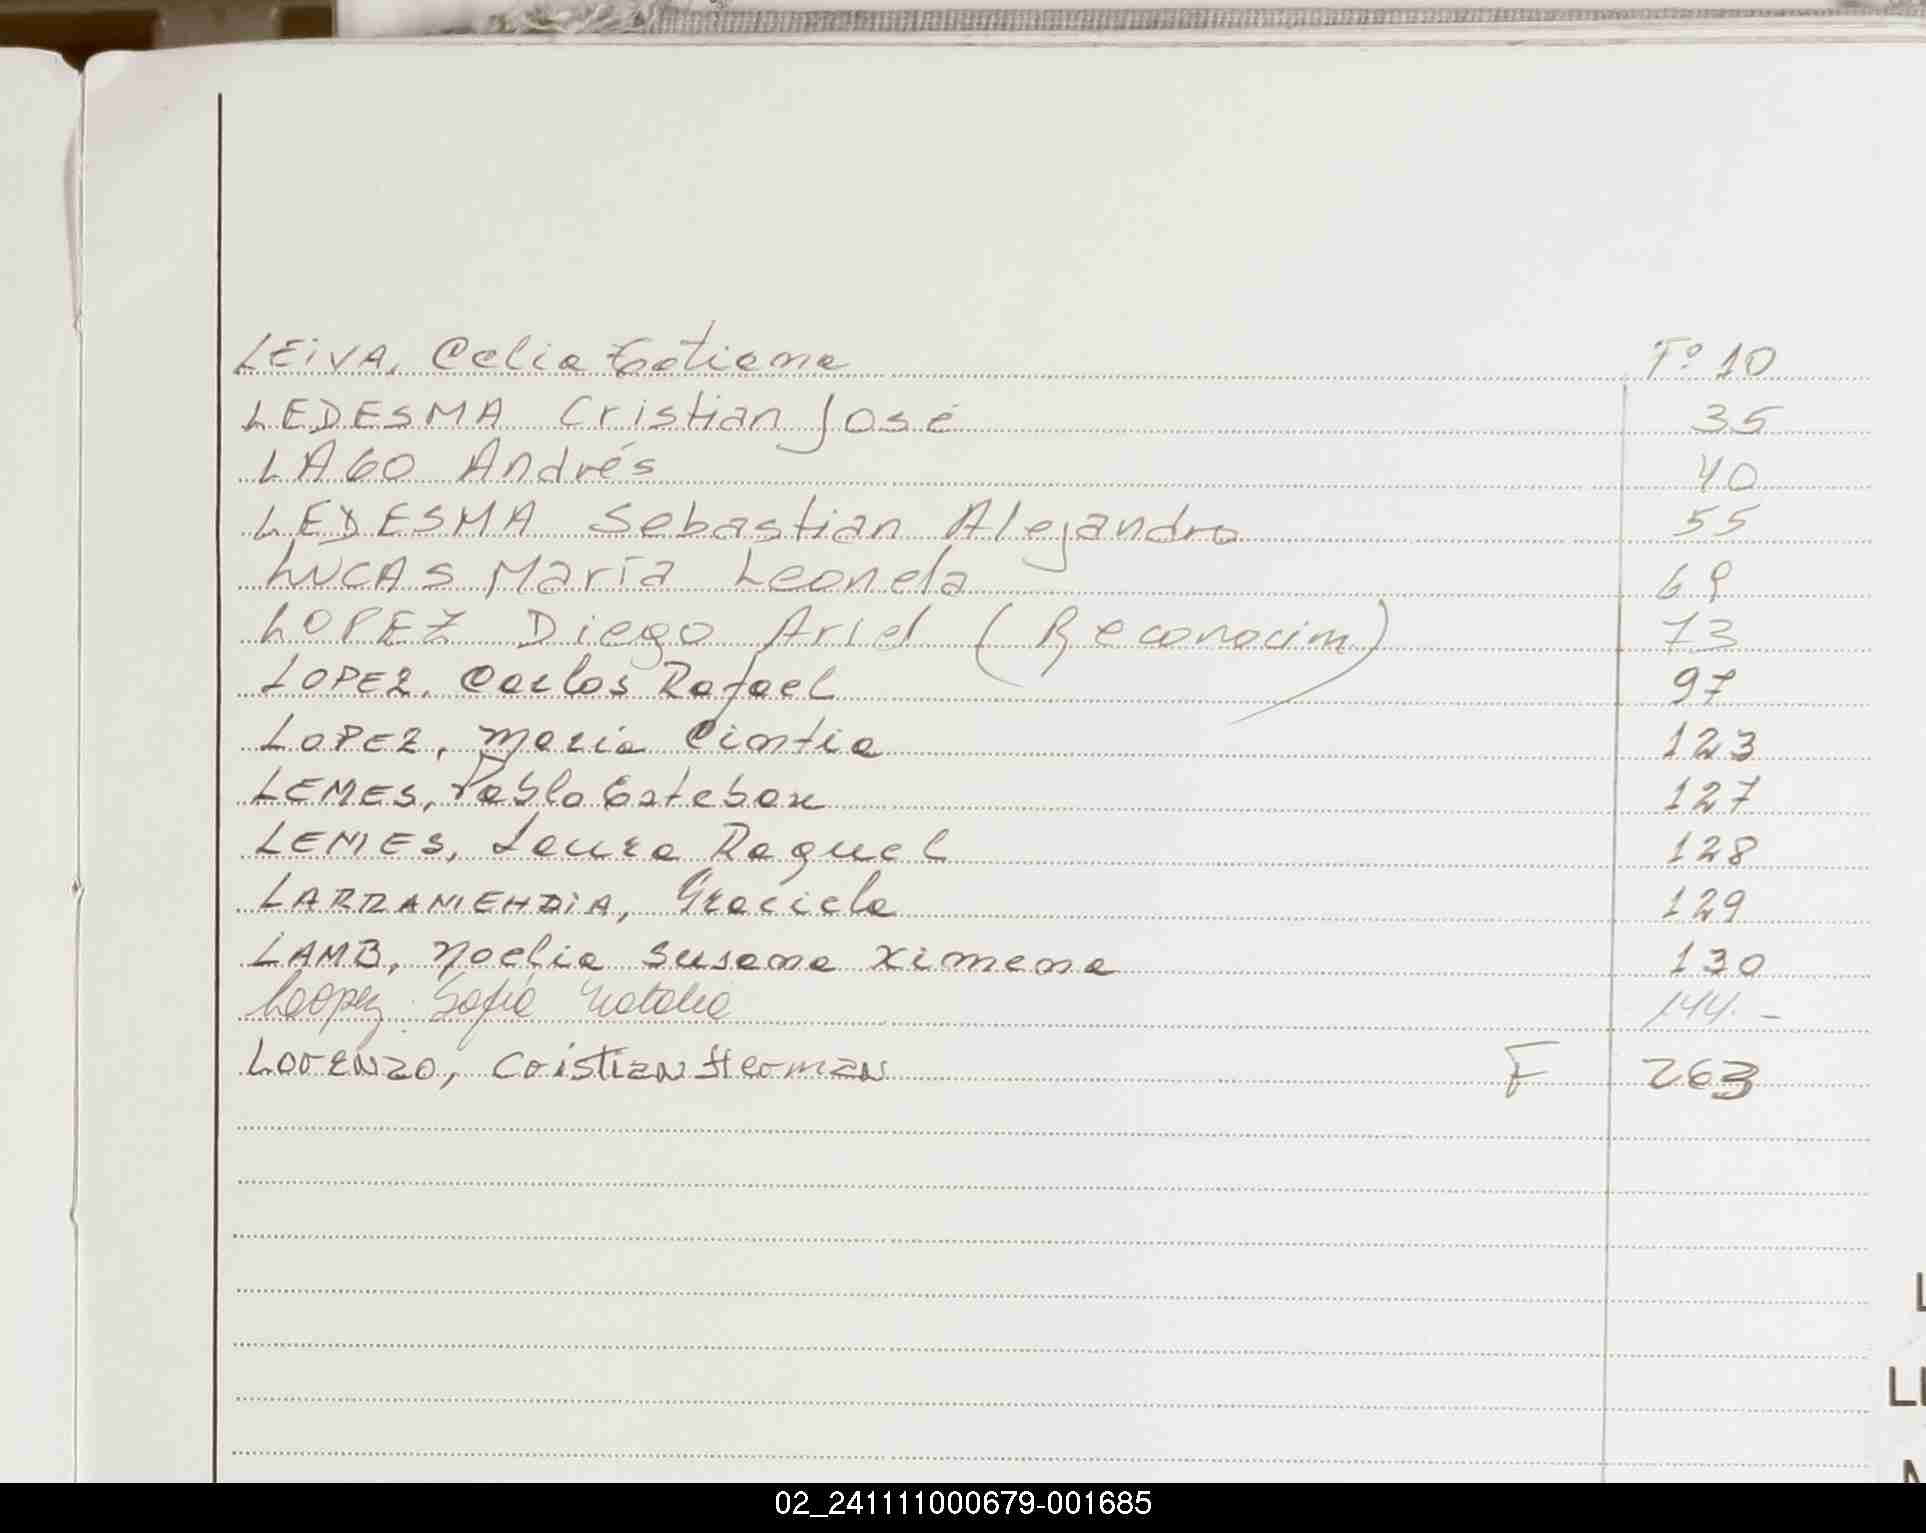 LEIVA, Celia Tatiana Fº 10
LEDESMA Cristian José 35
LAGO Andrés 40
LEDESMA Sebastian Alejandro 55
LUCAS María Leonela 69
LOPEZ Diego Ariel (Reconocim) 73
LOPEZ, Carlos Rafael 97
LOPEZ, Maria Cintia 123
LEMES, Pablo Esteban 127
LEMES, Laura Raquel 128
LARRAMENDIA, Graciela 129
LAMB, Noelia Susana Ximena 130
Loopez Sofia Natalia 144.-
LORENZO, Cristian German F 263
L
LL
02_241111000679-001685